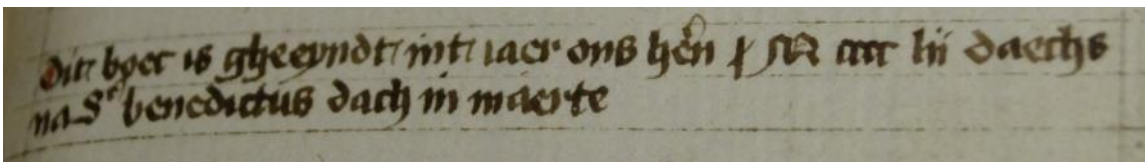 dit boec is gheeyndt int iaer ons hēn M cccc lii daechs
na S benedictus dach in maerte